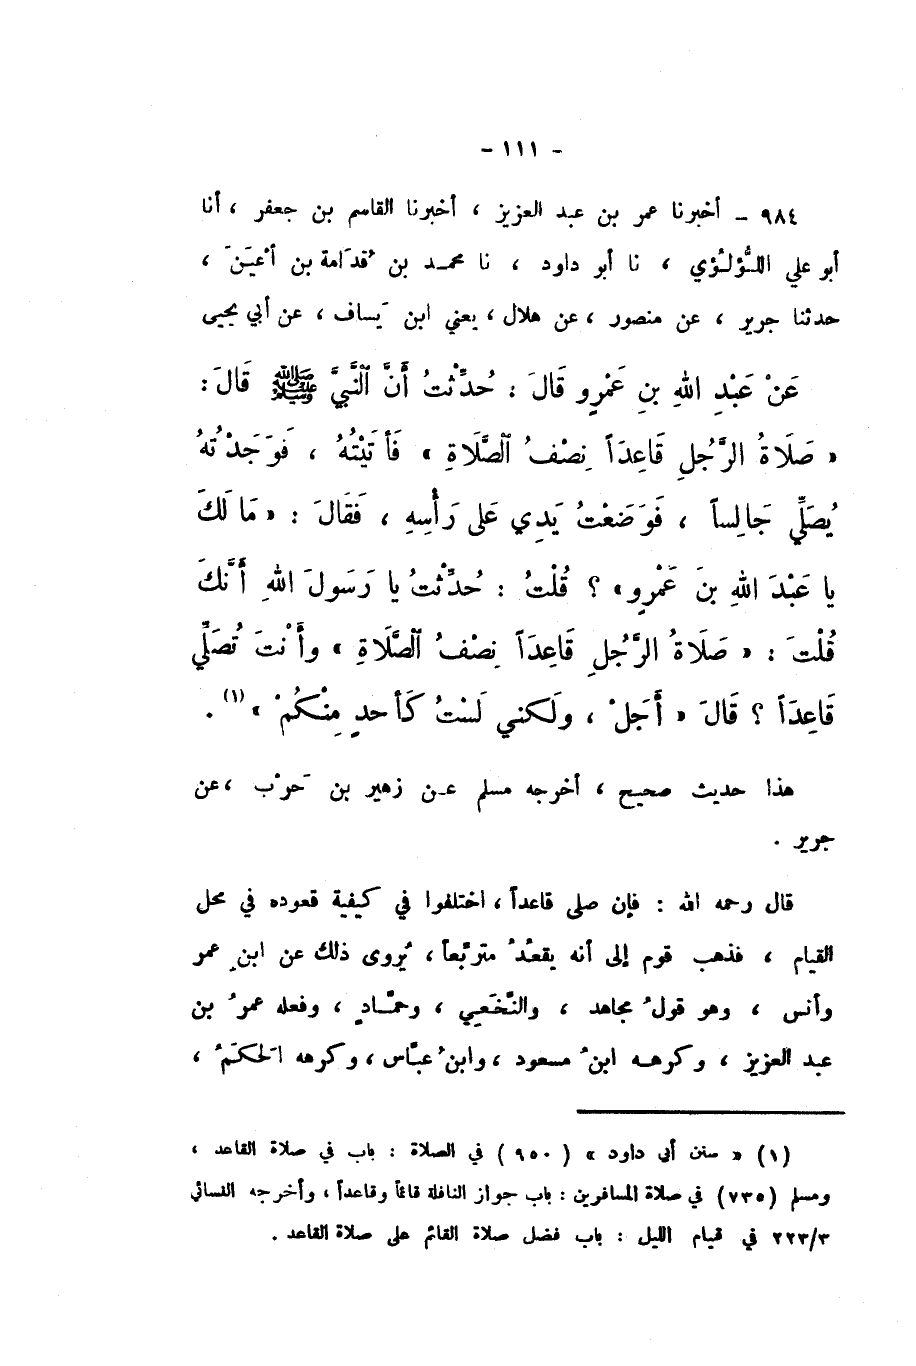 - ١١١ -
٩٨٤ - أخبرنا عمر بن عبد العزيز ، أخبرنا القاسم بن جعفر ، أنا
أبو علي اللُّؤلُؤي ، نا أبو داود ، نا محمد بن قُدَامة بن أعيَنَ ،
حدثنا جرير ، عن منصور ، عن هلال ، يعني ابن يَساف ، عن أبي يحيى
عَنْ عَبْدِ اللهِ بنِ عَمْرٍو قَالَ : حُدِّثْتُ أَنَّ ٱلنَّبِيَّ ﷺ قَالَ :
« صَلَاةُ الرَّجُلِ قَاعِدَاً نِصْفُ ٱلصَّلَاةِ » فَأَتَيْتُهُ ، فَوَجَدْتُهُ
يُصَلِّي جَالِساً ، فَوَضَعْتُ يَدِي عَلى رَأْسِهِ ، فَقَالَ : « مَا لَكَ
يا عَبْدَ اللهِ بنَ عَمْرٍو » ؟ قُلْتُ : حُدِّثْتُ يا رَسُولَ اللهِ أَنَّكَ
قُلْتَ : « صَلَاةُ الرَّجُلِ قَاعِدَاً نِصْفُ ٱلصَّلَاةِ » وأَنْتَ تُصَلِّي
قَاعِدَاً ؟ قَالَ « أَجَلْ ، ولَكني لَسْتُ كَأحدٍ مِنْكُمْ » (١) .
هذا حديث صحيح ، أخرجه مسلم عن زهير بن حَرْب ، عن
جرير .
قال رحمه الله : فإن صلى قاعداً ، اختلفوا في كيفية قعوده في محل
القيام ، فذهب قوم إلى أنه يقعُدُ متربِّعاً ، يُروى ذلك عن ابنِ عمر
وأنس ، وهو قولُ مجاهد ، والنَّخَعِي ، وحمَّادٍ ، وفعله عمرُ بن
عبد العزيز ، وكرهه ابنُ مسعود ، وابنُ عبَّاس ، وكرهه الحَكَمُ ،
(١) « سنن أبي داود » ( ٩٥٠ ) في الصلاة : باب في صلاة القاعد ،
ومسلم (٧٣٥) في صلاة المسافرين : باب جواز النافلة قائماً وقاعداً ، وأخرجه النسائي
٢٢٣/٣ في قيام الليل : باب فضل صلاة القائم على صلاة القاعد .